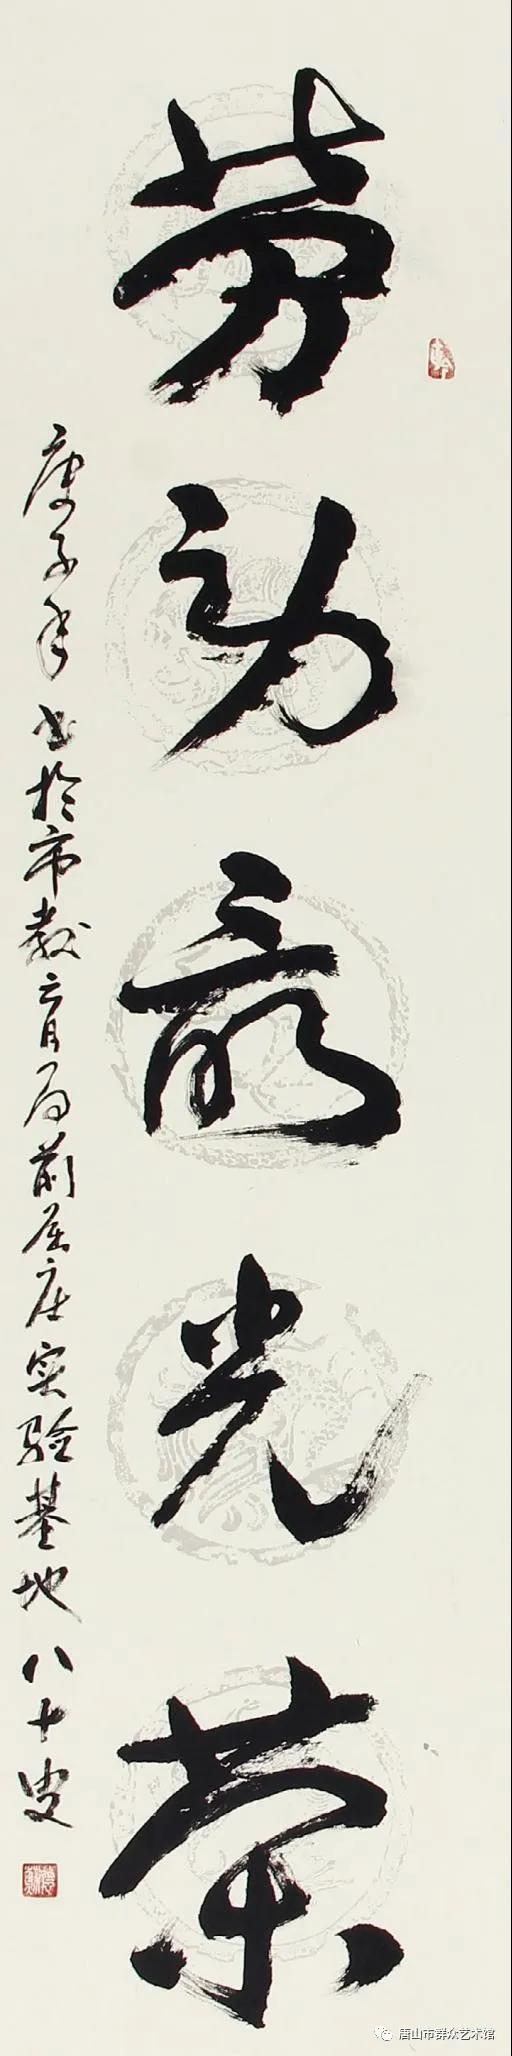 劳动最光荣
庚子年书於市教育局前屈庄实验基地八十叟
唐山市群众艺术馆